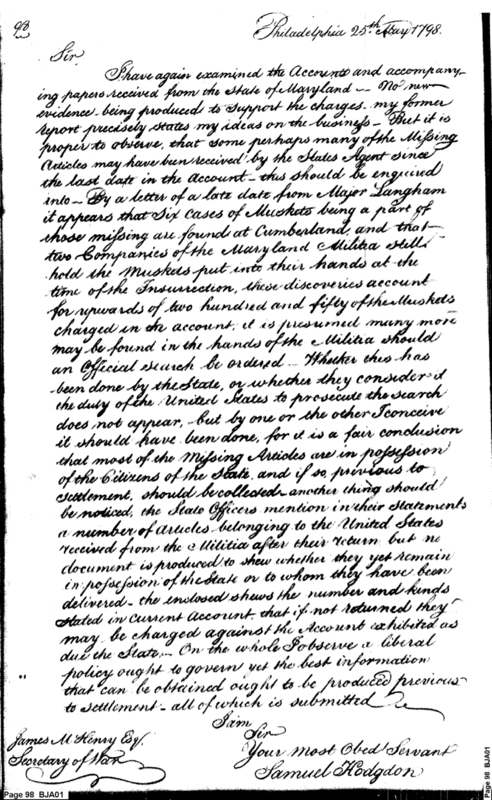 98
Philadelphia 25th May 1798.
Sir
I have again examined the Accounts and accompany-
ing papers received from the State of Maryland – No new
evidence being produced to support the charges. my former
report precisely states my ideas on the business – But it is
proper to observe, that some perhaps many of the Missing
Articles may have been received by the States Agent since
the last date in the Account – this should be enquired
into – By a letter of a late date from Major Langham
it appears that six cases of Muskets being a part of
those missing are found at Cumberland, and that
two Companies of the Maryland Militia still
hold the Muskets put into their hands at the
time of the Insurrection, these discoveries account
for upwards of two hundred and fifty of the Muskets
charged in the account. it is presumed many more
may be found in the hands of the Militia should
an Official search be ordered – Whether this has
been done by the State, or whether they consider it
the duty of the United States to prosecute the search
does not appear, but by one or the other I conceive
it should have been done, for it is a fair conclusion
that most of the Missing Articles are in possession
of the Citizens of the State, and if so, previous to
settlement, should be collected – another thing should
be noticed, the State Officers mention in their Statements
a number of Articles belonging to the United States
received from the Militia after their return but no
document is produced to shew whether they yet remain
in possession of the State or to whom they have been
delivered – the enclosed shews the number and kinds
stated in Current Account, that if not returned they
may be charged against the Account exhibited as
due the State – On the whole I observe a liberal
policy ought to govern yet the best information
that can be obtained ought to be produced previous
to settlement – all of which is submitted
I am
Sir
Your most Obed Servant
Samuel Hodgdon
James McHenry Esqr.
Secretary of War
Page 98 BJA01
Page 98 BJA01